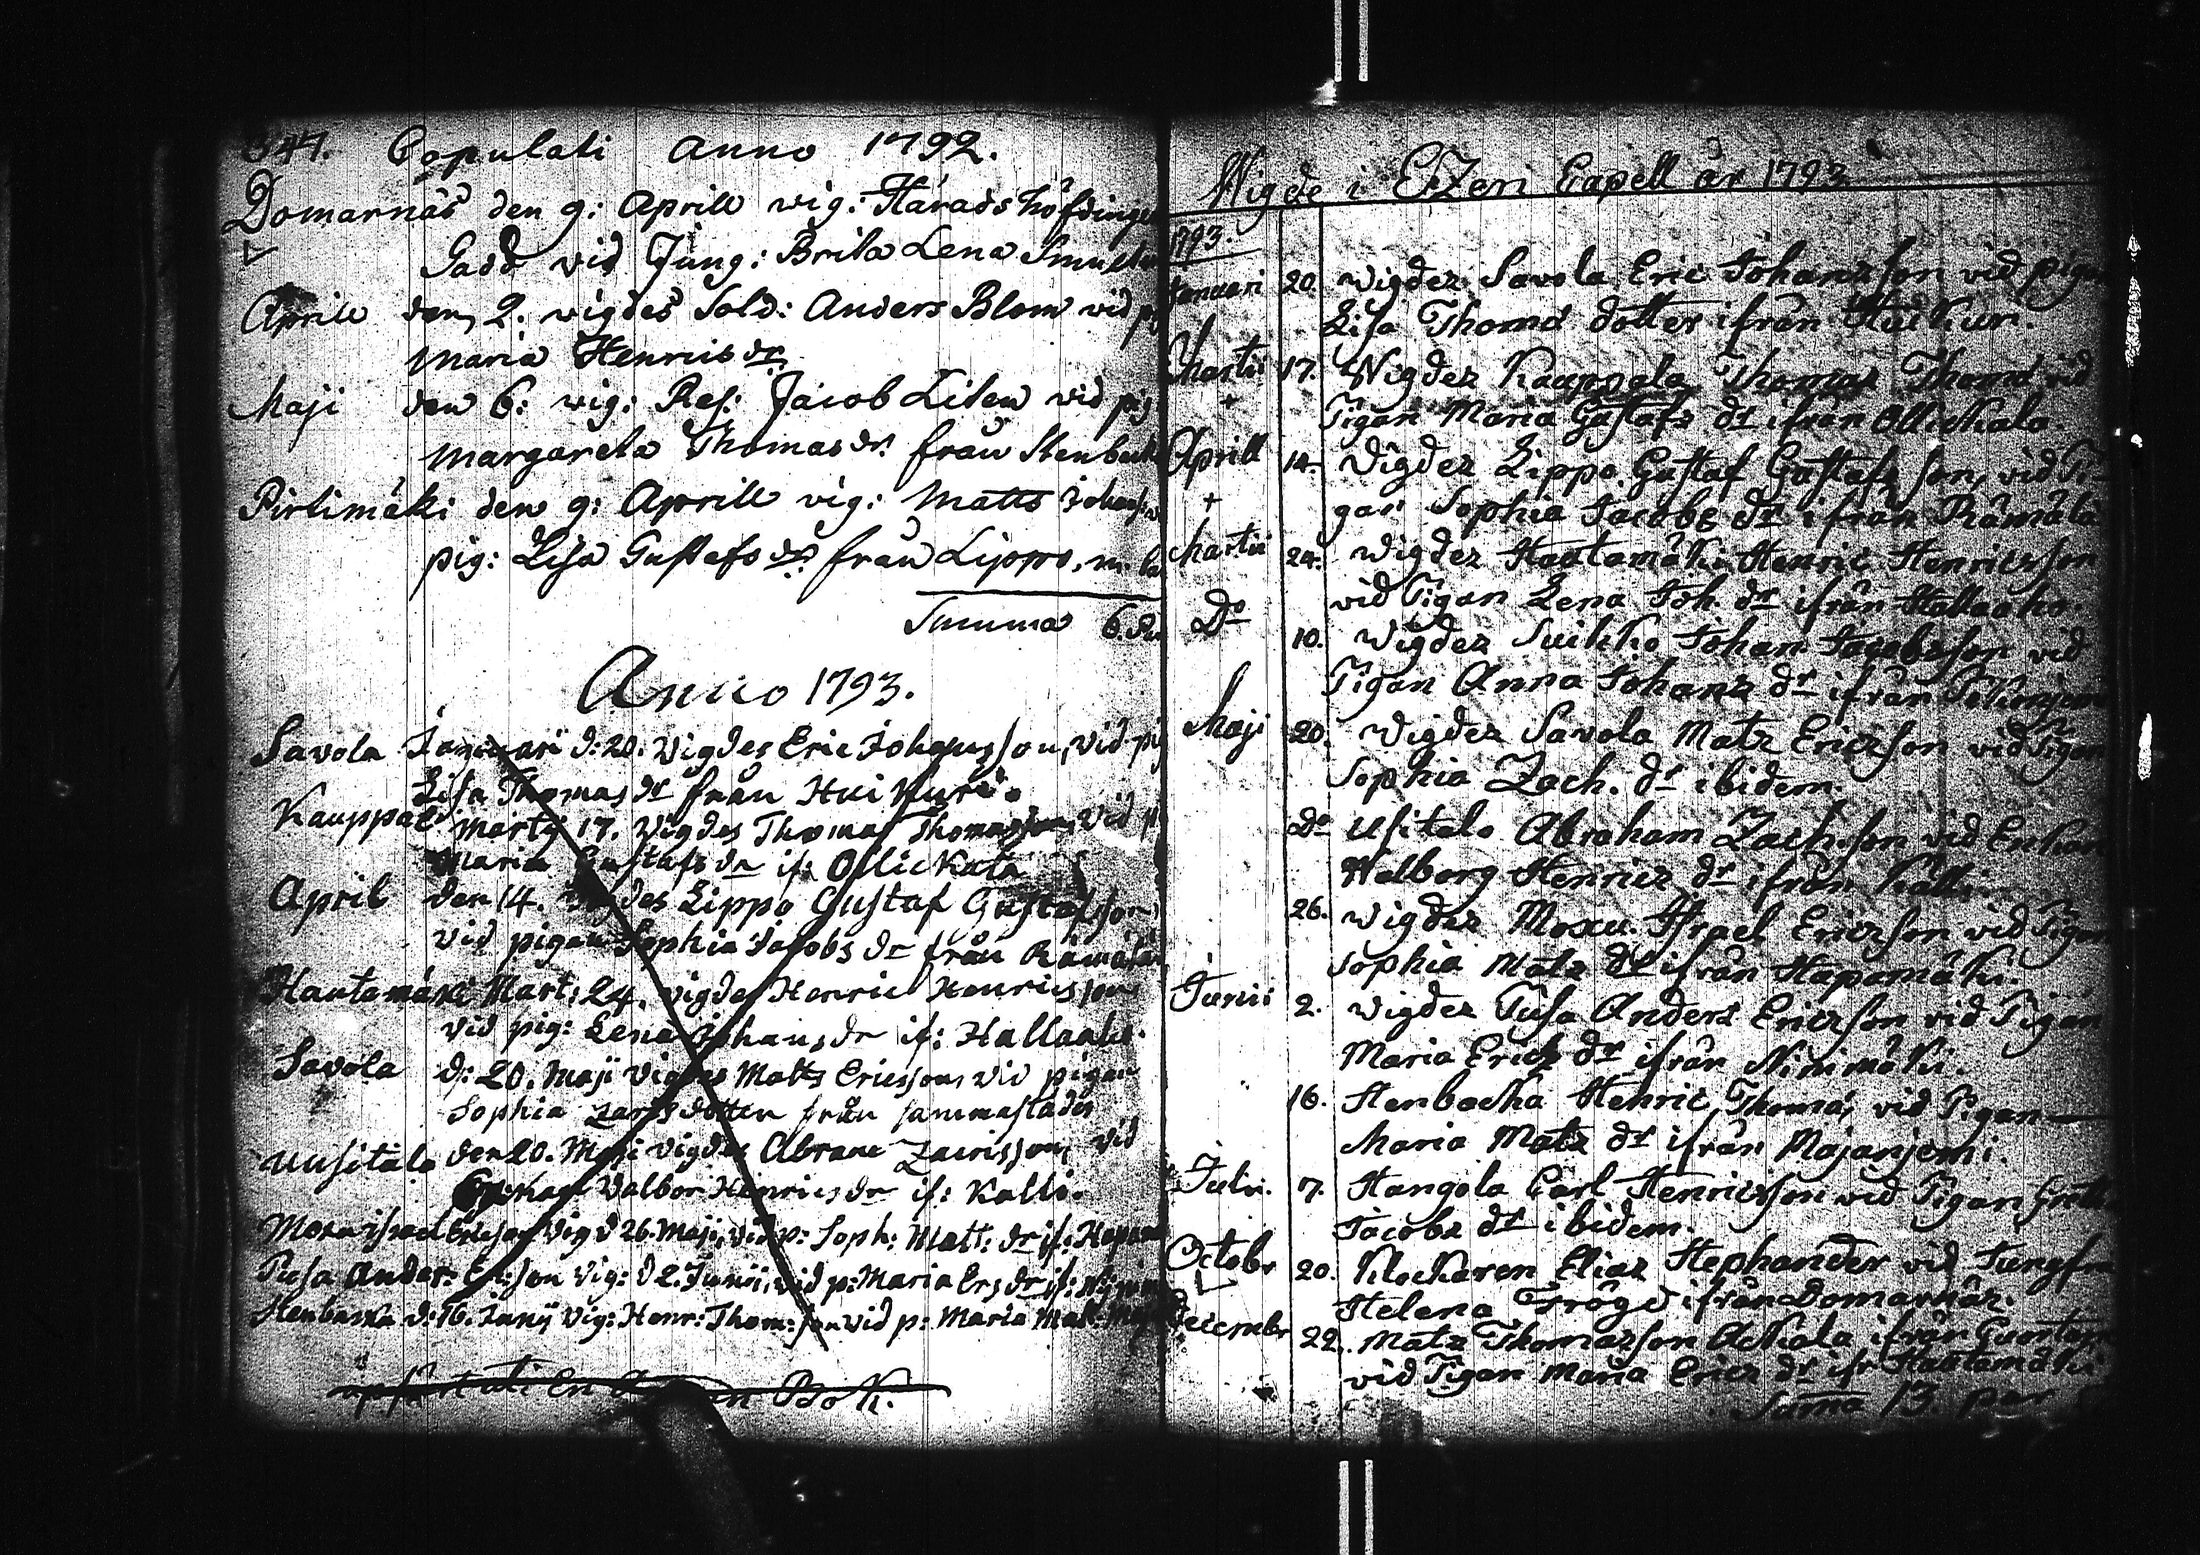 347. Copulati Anno 1792.
Domarnäs den 9: Aprill vig: Härads höfdinge
Gadd vid Jung: Brita Lena
Aprill den 2. wigdes Sold: Anders Blom vid
Maria Henrics dr
Maji den 6: wig: Res: Jacob Liten vid pig
Margareta Thomas dr. från Stenback
Pirtimäki den 9: Aprill vig: Matts Johans
pig: Lisa Gustafs dr från Lippo, m.
Summa 6.
Anno 1793.
Savola Januari d: 20. vigdes Eric Johansson, vid pig
Lisa Thomas dr från Huikuri.
Kauppal Martij 17. vigdes Thomas Thomasson vid p
Maria Gustafs dr if: Ollickala
April den 14. vigdes Lippo Gustaf Gustafsson
vid pigan Sophia Jacobs dr från Rämälä
Hautamäki Mart: 24. vigdes Henric Henricsson
vid pig: Lena Johans dr if: Hallaaho.
Savola d: 20. Maji vigdes Matts Ericsson vid pigan
Sophia Zacrisdotter från sammastädes
Uusitalo den 20. Maji vigdes Abram Zacrisson vid
Enkan Valbor Henrics dr if: Kalli.
Moxu Israel Ericson vig d 26. Maji, vid p: Soph: Matt: dr if: Hapam
Pusa Anders Er:son vig: d 2. Junii, vid p: Maria Ers dr if: Nijnim
Stenbacka d: 16. Junij vig: Henr: Thom:son vid p: Maria Mat:
Bok.
Wigde i Etzeri Capell år 1793
1793.
Januari 20. wigdez Savola Eric Johanzson vid pigan
Lisa Thomæ dotter ifrån Huikuri.
Martii 17. Wigdez Kauppala Thomas Thomæ vid
Pigan Maria Gustafz dr ifrån Ollickala.
Aprill 14. Wigdez Lippo Gustaf Gustafz son, vid Pi-
gan Sophia Jacobz dr ifrån Rämälä
Martii 24. Wigdez Hautamäki Henric Henricsson
vid Pigan Lena Joh. dr ifrån Hallaaho.
Do 10. Wigdez Suikko Johan Jacobzson vid
Pigan Anna Johanz dr ifrån
Maji 20. Wigdez Savola Matz Ericzson vid Pigan
Sophia Zach. dr ibidem.
Do Usitalo Abraham Zach:son vid Enkan
Walborg Henricz dr ifrån Kalli.
26. Wigdez Moxu Israel Ericzson vid Pigan
Sophia Matz dr ifrån Hapamäki.
Junii 2. Wigdez Pusa Anders Ericzson vid Pigan
Maria Ericz dr ifrån Ninimäki.
16. Stenbacka Henric Thomæ, vid Pigan
Maria Matz dr ifrån Majanjemi.
Julii. 7. Hangola Carl Henricsson vid Pigan
Jacobz dr ibidem.
Octobr 20. Klockaren Elias Stephander vid Jungfru
Helena Frögd ifrån Domarnäz.
Decembr 22. Matz Thomazson Ackola ifrån
vid Pigan Maria Ericz dr ifr Hautamäki
Suma 13. par